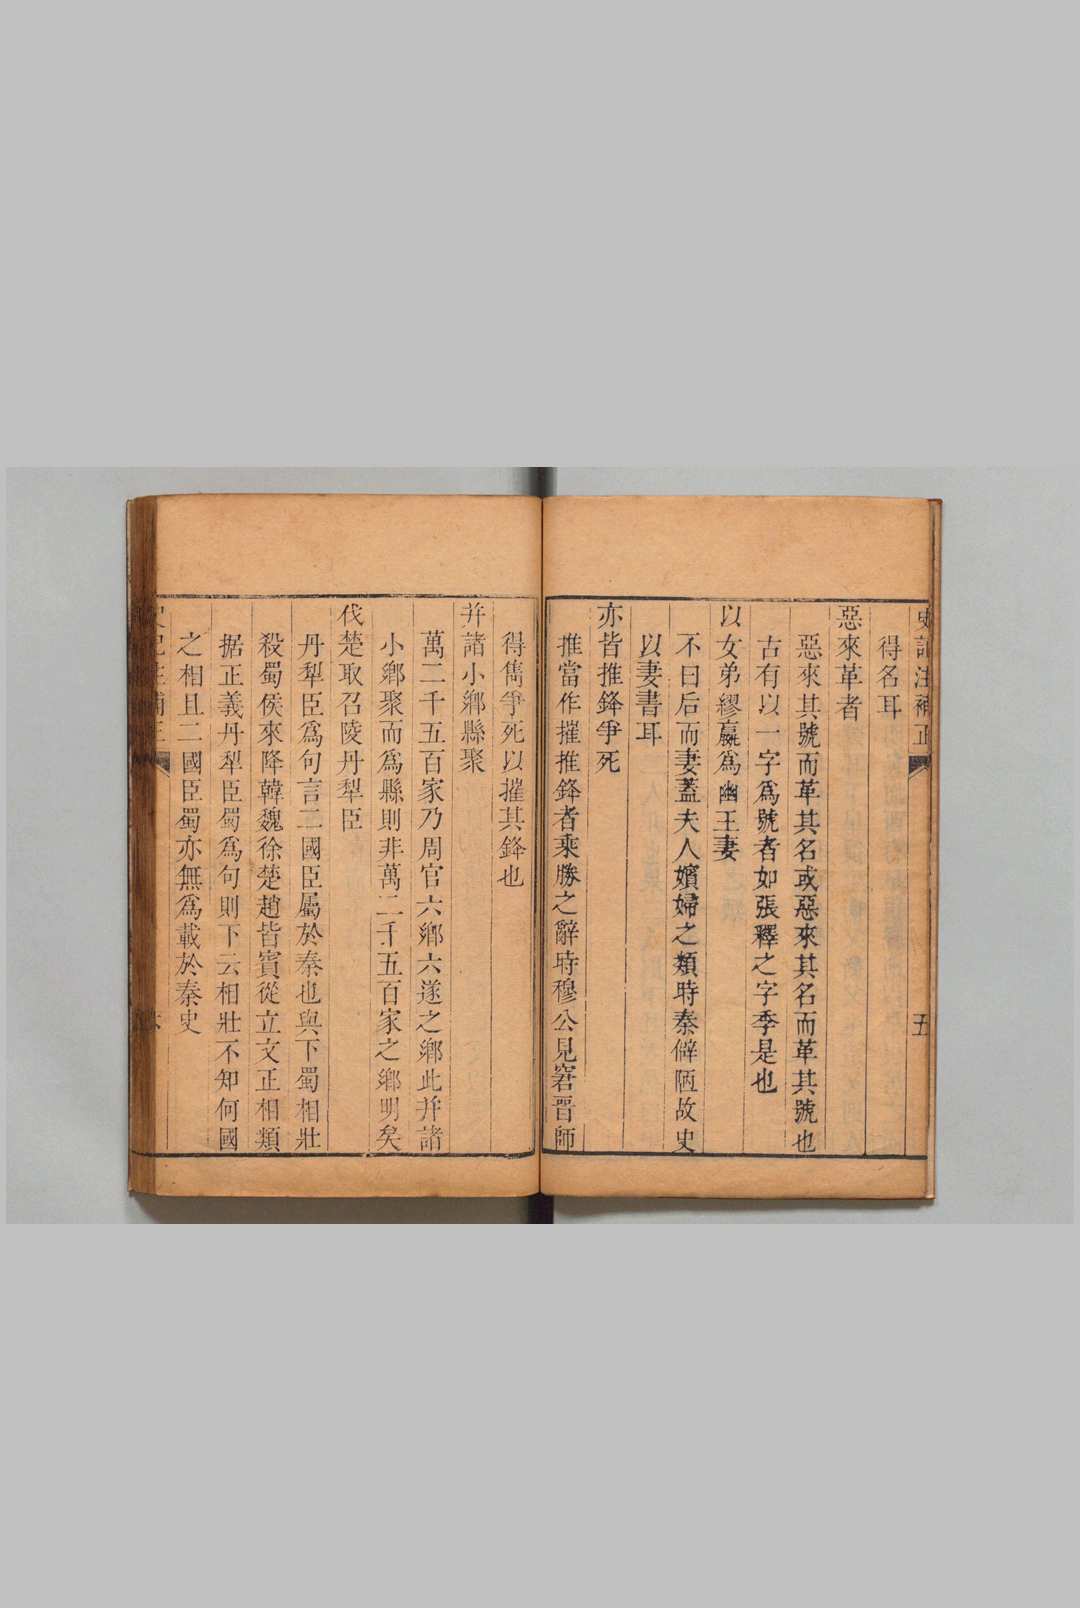 史記注補正
五
得名耳
惡來革者
惡來其號而革其名或惡來其名而革其號也
古有以一字爲號者如張釋之字季是也
以女弟繆嬴爲豳王妻
不曰后而妻蓋夫人嬪婦之類時秦僻陋故史
以妻書耳
亦皆推鋒爭死
推當作摧推鋒者乘勝之辭時穆公見窘晉師
得雋爭死以摧其鋒也
幷諸小鄉縣聚
萬二千五百家乃周官六鄉六遂之鄉此幷諸
小鄉聚而爲縣則非萬二千五百家之鄉明矣
伐楚取召陵丹犁臣
丹犁臣爲句言二國臣屬於秦也與下蜀相壯
殺蜀侯來降韓魏徐楚趙皆賓從立文正相類
据正義丹犁臣蜀爲句則下云相壯不知何國
之相且二國臣蜀亦無爲載於秦史
史記注補正
六